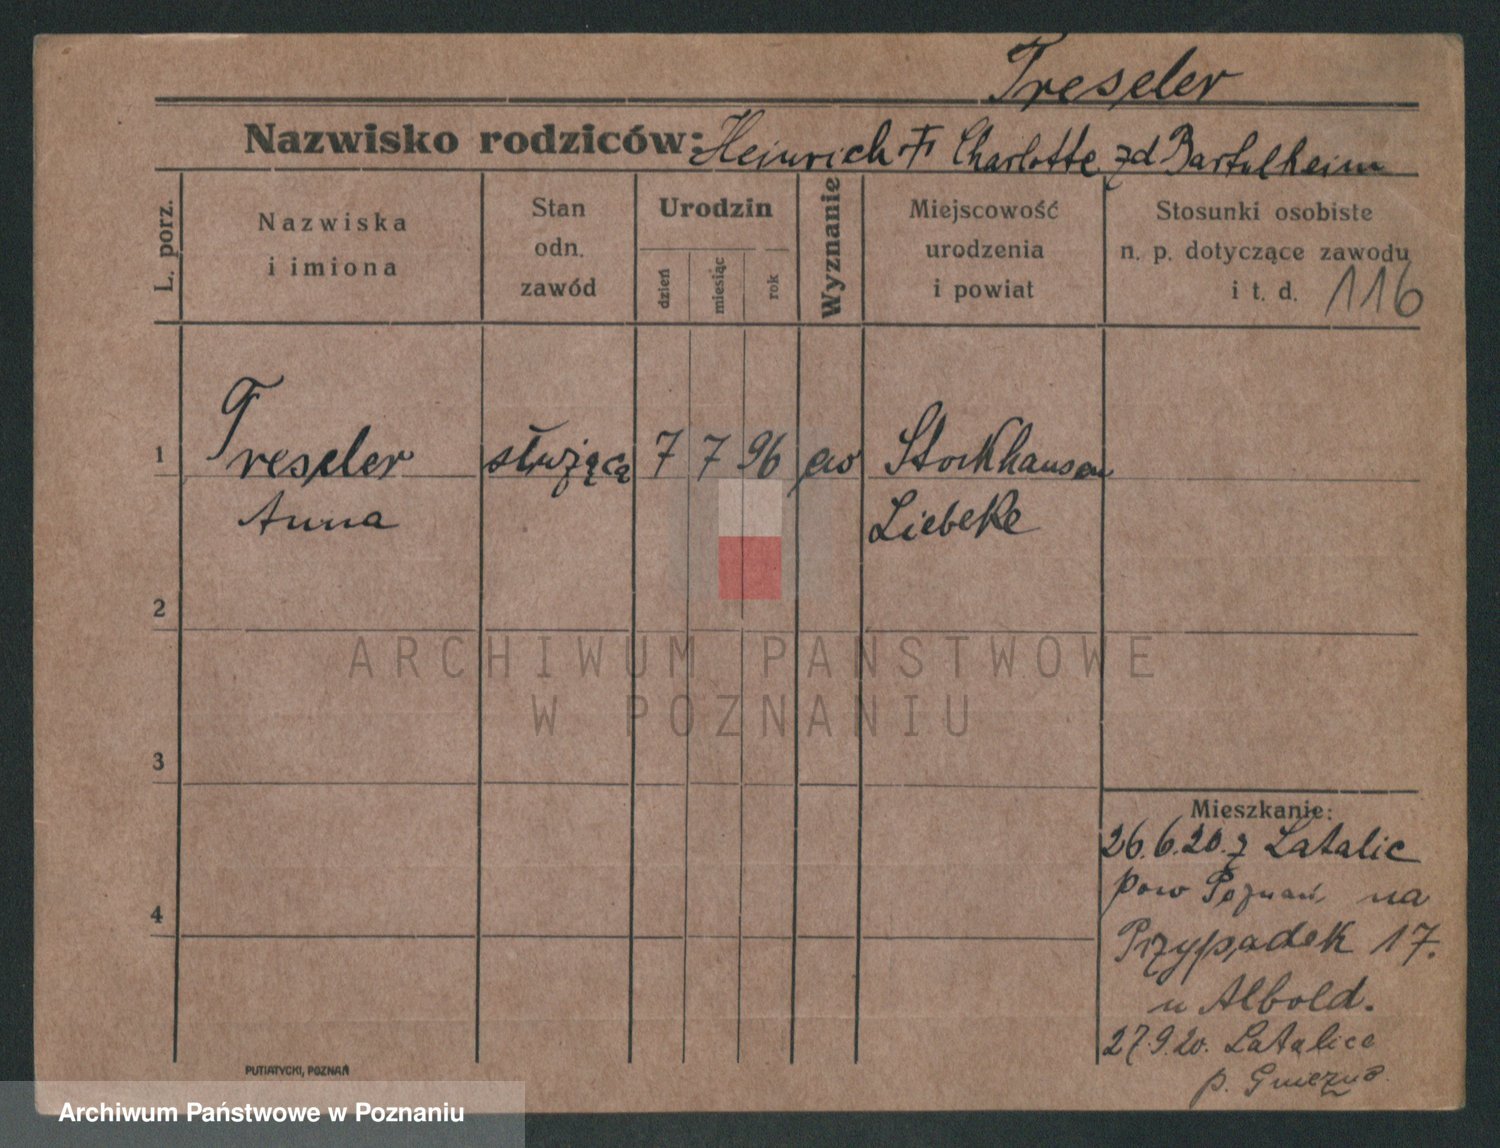 Treseler
Nazwisko rodziców: Heinrich Charlotte zd Bartelheim
L. porz.
Nazwiska
i imiona
Stan
odn.
zawód
Urodzin
dzień
miesiąc
rok
Wyznanie
Miejscowość
urodzenia
i powiat
Stosunki osobiste
n. p. dotyczące zawodu
i t. d. 116
1 Treseler służąca 7 7 96 ew Stockhausen
Anna Liebeke
2
3
4
Mieszkanie:
26.6.20. z Latalic
pow Poznań na
Przypadek 17.
u Albold.
27.9.20. Latalice
p. Gniezno.
PUTIATYCKI, POZNAŃ
ARCHIWUM PAŃSTWOWE
W POZNANIU
Archiwum Państwowe w Poznaniu